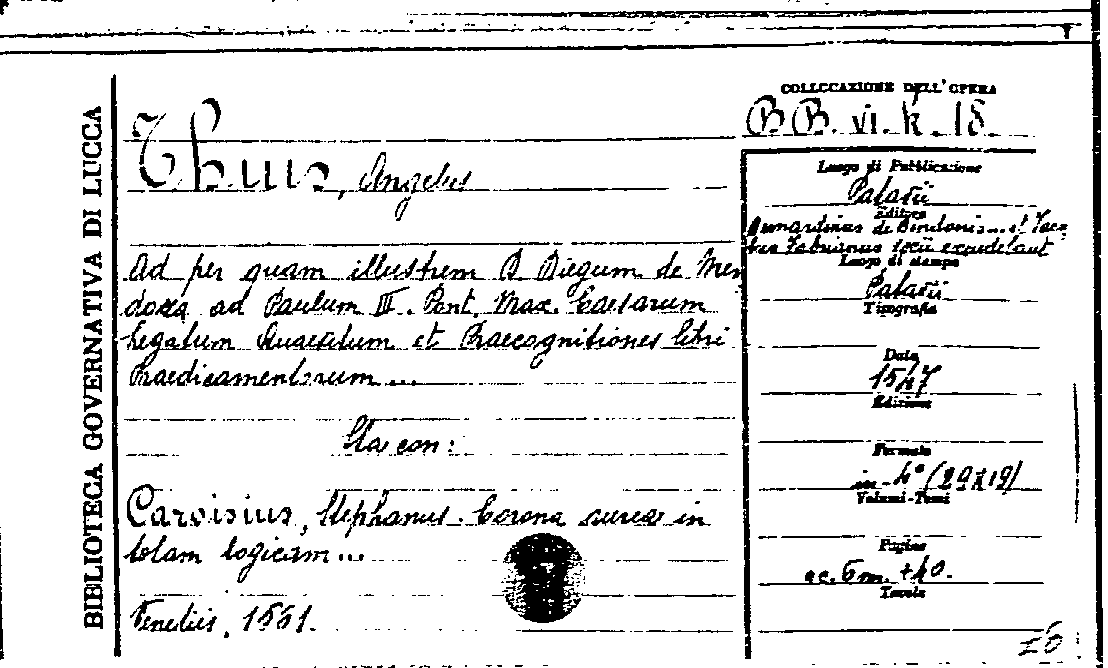 BIBLIOTECA GOVERNATIVA DI LUCCA
COLLOCAZIONE DELL'OPERA
B B. VI. K. 18.
Thius, Angelus
Ad per quam illustrem D Diegum de Men
doza ad Paulum III. Pont. Max. Caesarum
Legatum Quaesitum et Praecognitiones libri
Praedicamentorum...
Sta con:
Carvisius, Stephanus. Corona aurea in
totam logicam...
Venetiis, 1551.
Luogo di Pubblicazione
Patavii
Editore
de Bindonis... et Jaco
bus Fabrianus socii excudebant
Luogo di stampa
Patavii
Tipografia
Data
1547
Edizione
Formato
in-4° (29x19)
Volumi-Tomi
Pagine
cc. 6 m. + 40.
Tavole